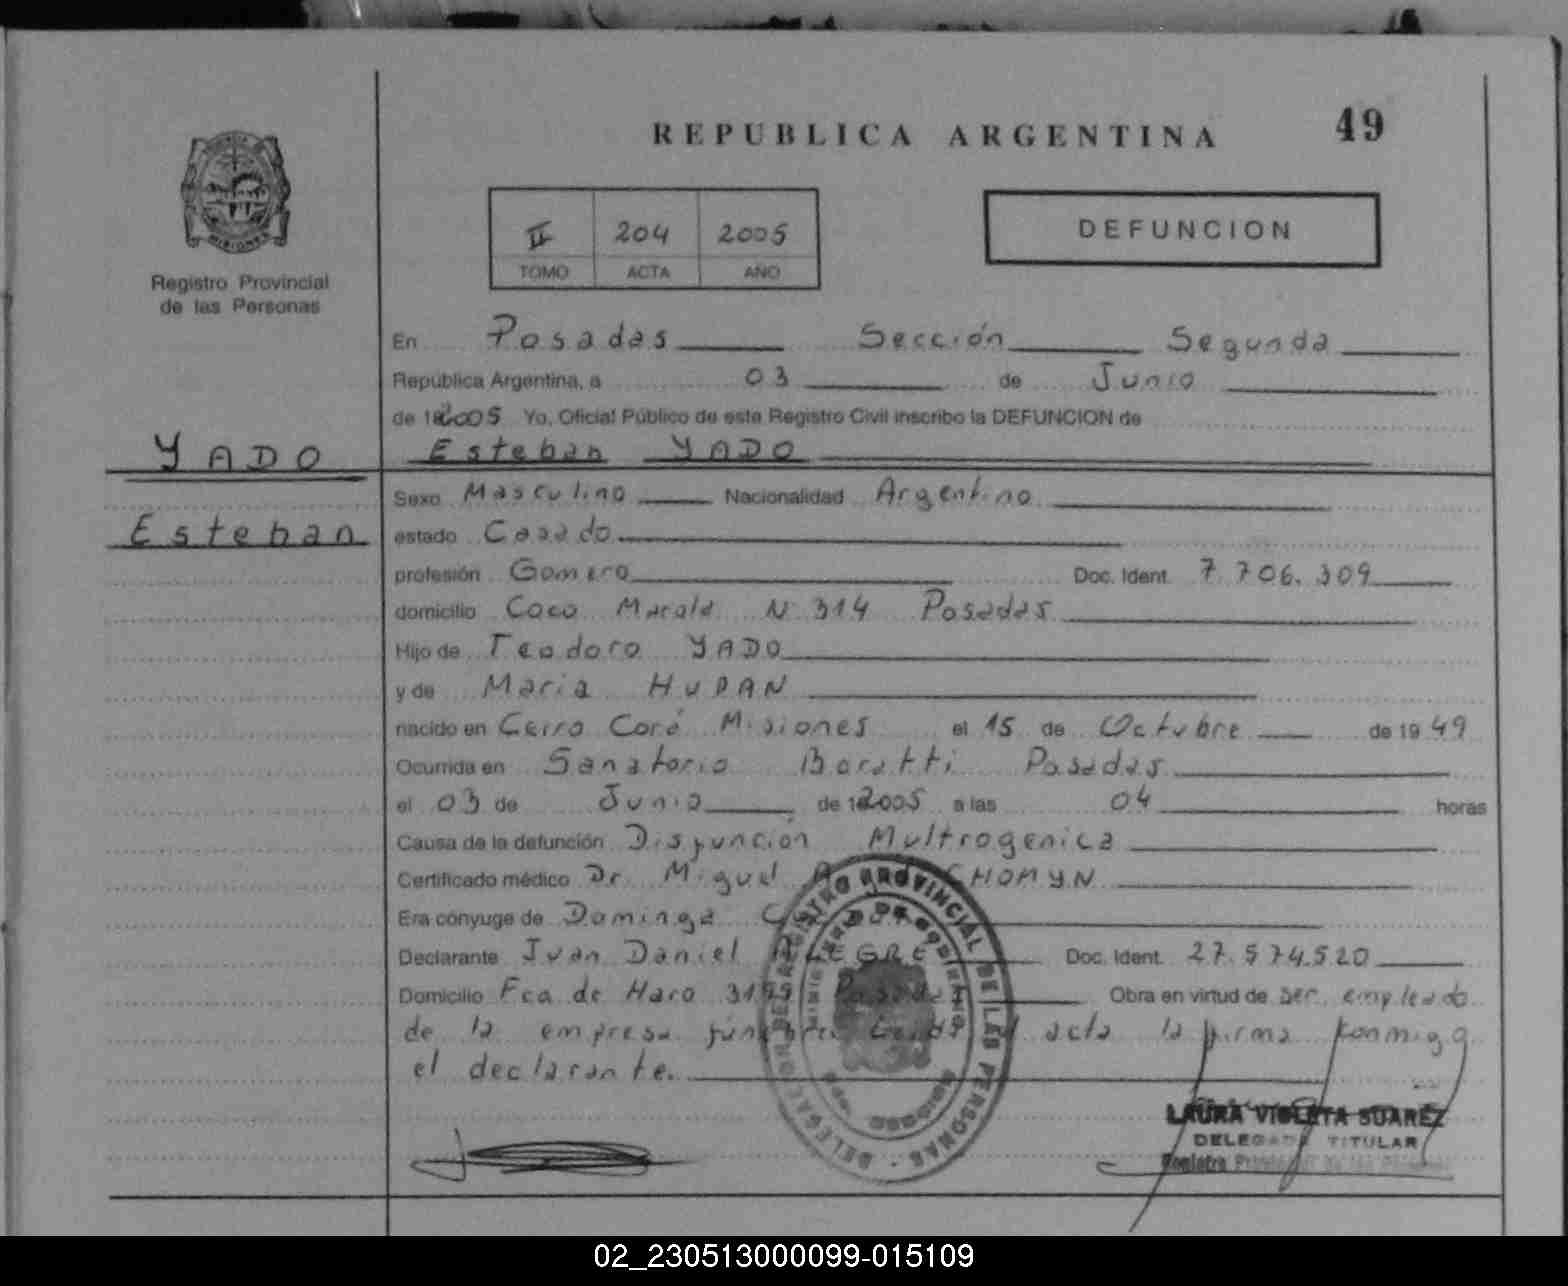 REPUBLICA ARGENTINA 49
MISIONES
Registro Provincial
de las Personas
II 204 2005
TOMO ACTA AÑO
DEFUNCION
En Posadas Sección Segunda
República Argentina, a 03 de Junio
de 2005 Yo, Oficial Público de este Registro Civil inscribo la DEFUNCION de
YADO
Esteban
Esteban YADO
Sexo Masculino Nacionalidad Argentino
estado Casado
profesión Gomero Doc. Ident. 7.706.309
domicilio Coco N 314 Posadas
Hijo de Teodoro YADO
y de Maria HUDAN
nacido en Cerro Corá Misiones el 15 de Octubre de 1949
Ocurrida en Sanatorio Boratti Posadas
el 03 de Junio de 2005 a las 04 horas
Causa de la defunción Disfunción Multrogenica
Certificado médico Dr. Miguel CHOMYN
Era cónyuge de Dominga
Declarante Juan Daniel ALEGRE Doc. Ident. 27.574.520
Domicilio Fca de Haro Posadas Obra en virtud de ser empleado
de la empresa acta la firma konmigo
el declarante.
REGISTRO PROVINCIAL DE LAS PERSONAS
LAURA VIOLETA SUAREZ
DELEGADA TITULAR
Registro Provincial de las Personas
02_230513000099-015109